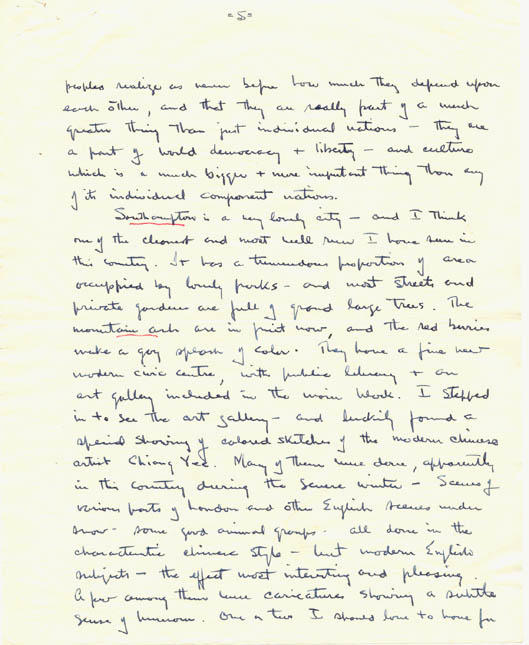 -5-
peoples realize as never before how much they depend upon
each other, and that they are really part of a much
greater thing than just individual nations – they are
a part of world democracy + liberty – and culture
which is a much bigger + more important thing than any
of its individual component nations.
Southampton is a very lovely city – and I think
one of the cleanest and most well run I have seen in
this country. It has a tremendous proportion of area
occuppied by lovely parks – and most streets and
private gardens are full of grand large trees. The
mountain ash are in fruit now, and the red berries
make a gay splash of color. They have a fine new
modern civic centre, with public library + an
art gallery included in the main block. I stepped
in to see the art gallery – and luckily found a
special showing of colored sketches of the modern chinese
artist Chiang Yee. Many of them were done, apparently
in this country during the severe winter – Scenes of
various parts of London and other English scenes under
snow – some good animal groups – all done in the
characteristic chinese style – but modern English
subjects – the effect most interesting and pleasing.
A few among them were caricatures showing a subtle
sense of humour. One or two I should love to have for